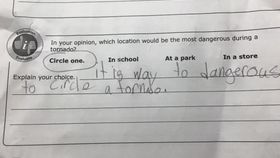 In your opinion, which location would be the most dangerous during a
tornado?
Circle one. In school At a park In a store
Explain your choice. it is way to dangerous
to circle a tornado.